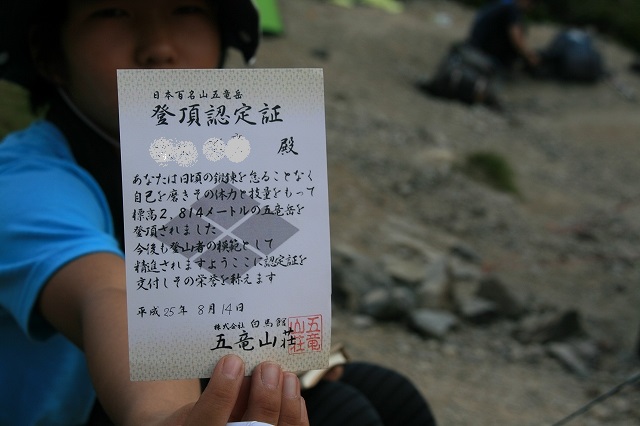 日本百名山五竜岳
登頂認定証
殿
あなたは日頃の鍛練を怠ることなく
自己を磨きその体力と技量をもって
標高2,814メートルの五竜岳を
登頂されました
今後も登山者の模範として
精進されますようここに認定証を
交付しその栄誉を称えます
平成25年8月14日
株式会社白馬館
五竜山荘
五竜
山荘